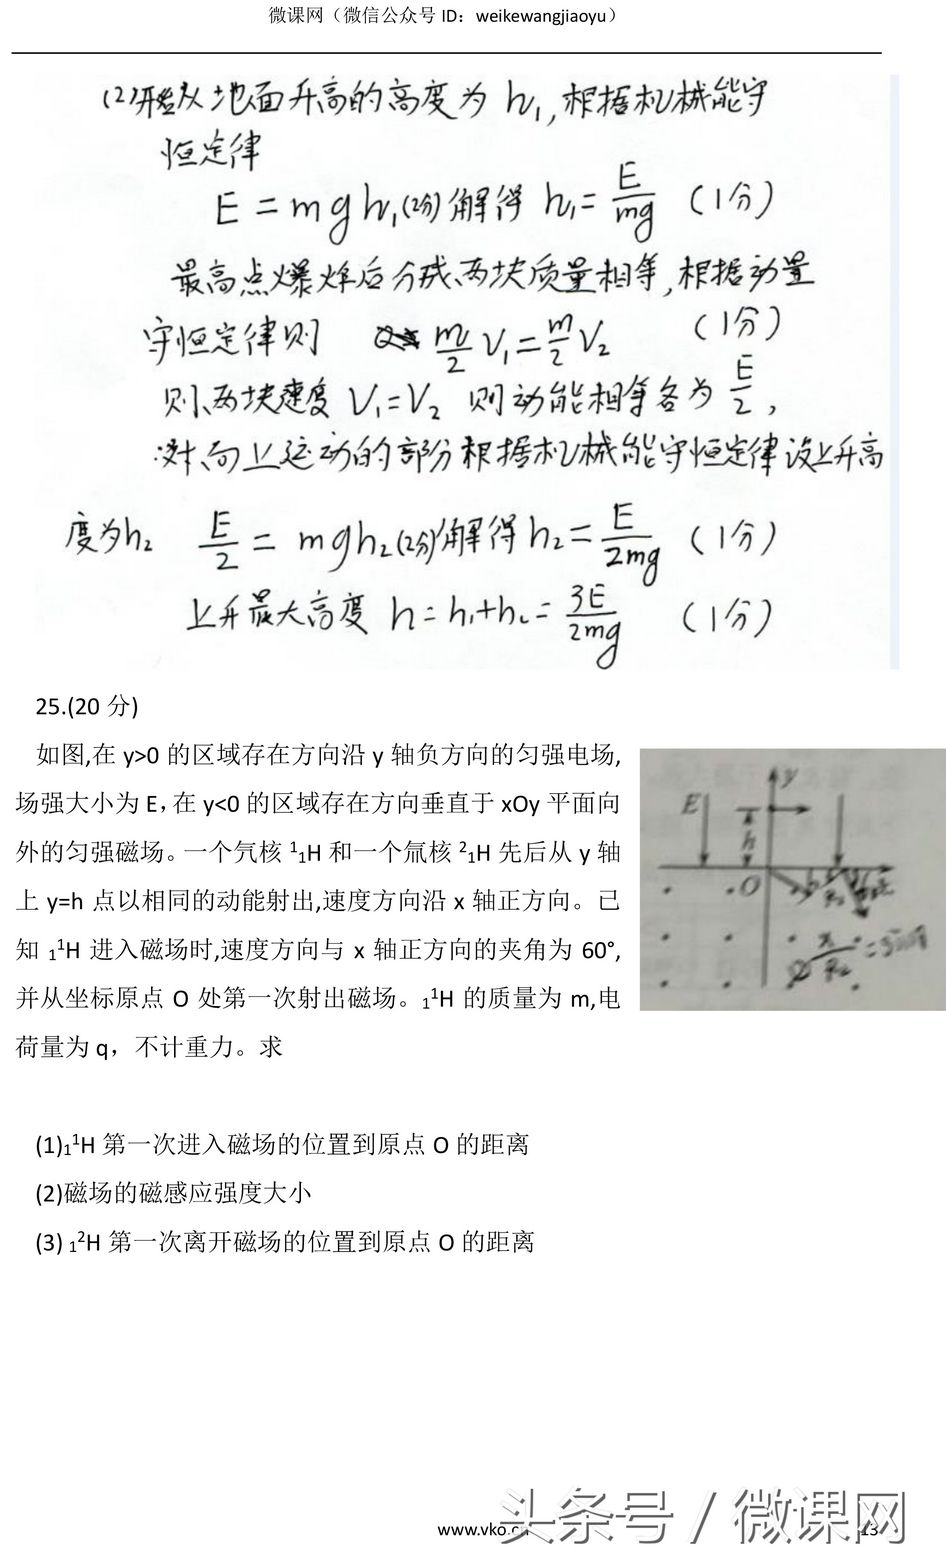 微课网（微信公众号 ID：weikewangjiaoyu）
(2)开始从地面升高的高度为 h₁，根据机械能守
恒定律
E = mgh₁(2分)解得 h₁= E/mg (1分)
最高点爆炸后分成两块质量相等，根据动量
守恒定律则 m/2 V₁ = m/2 V₂ (1分)
则两块速度 V₁=V₂ 则动能相等各为 E/2，
对向上运动的部分根据机械能守恒定律设上升高
度为h₂ E/2 = mgh₂(2分)解得h₂= E/2mg (1分)
上升最大高度 h = h₁+h₂ = 3E/2mg (1分)
25.(20 分)
如图,在 y>0 的区域存在方向沿 y 轴负方向的匀强电场,
场强大小为 E，在 y<0 的区域存在方向垂直于 xOy 平面向
外的匀强磁场。一个氕核 ¹₁H 和一个氚核 ²₁H 先后从 y 轴
上 y=h 点以相同的动能射出,速度方向沿 x 轴正方向。已
知 ₁¹H 进入磁场时,速度方向与 x 轴正方向的夹角为 60°,
并从坐标原点 O 处第一次射出磁场。₁¹H 的质量为 m,电
荷量为 q，不计重力。求
E
y
h
O
(1)₁¹H 第一次进入磁场的位置到原点 O 的距离
(2)磁场的磁感应强度大小
(3) ₁²H 第一次离开磁场的位置到原点 O 的距离
www.vko.cn
头条号 / 微课网
13